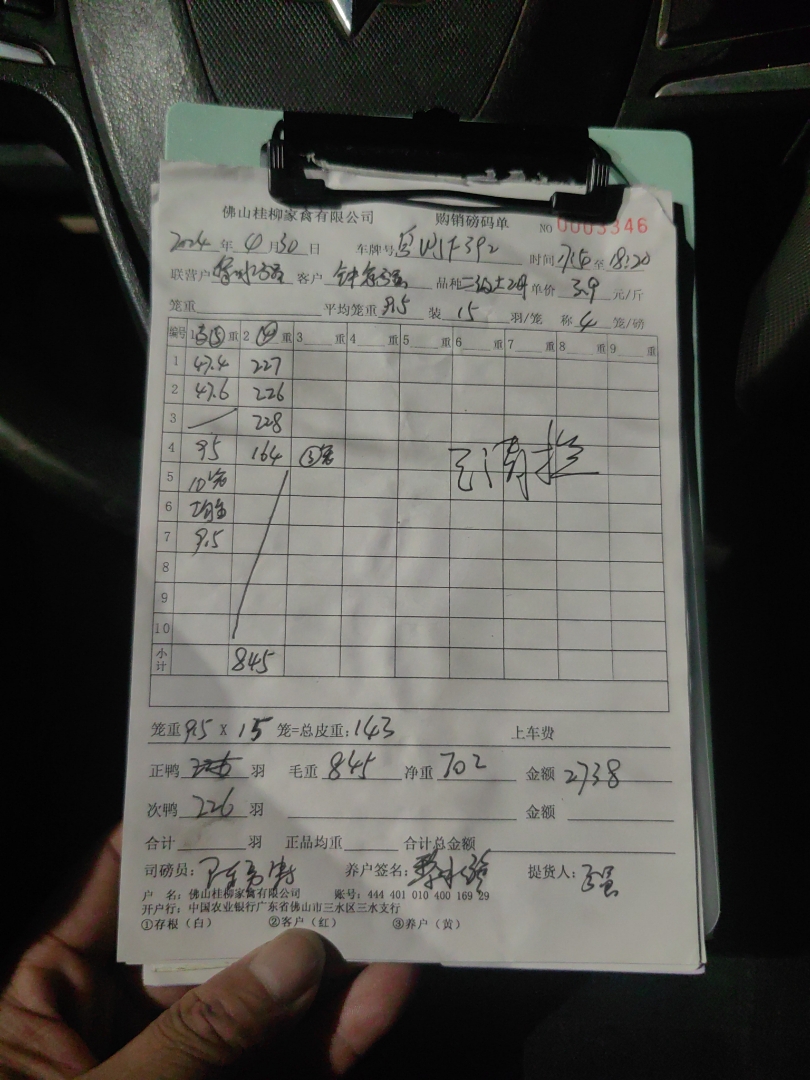 佛山桂柳家禽有限公司 购销磅码单 NO 0003346
2024 年 4 月 30 日 车牌号 时间 至 18:20
联营户 客户 品种 单价 3.9 元/斤
笼重 平均笼重 9.5 装 15 羽/笼 称 4 笼/磅
编号 1 重 2 重 3 重 4 重 5 重 6 重 7 重 8 重 9 重
1 47.4 227
2 47.6 226
3 228
4 95 164
5
6
7 9.5
8
9
10
小计 845
笼重 9.5 X 15 笼=总皮重: 143 上车费
正鸭 羽 毛重 845 净重 702 金额 2738
次鸭 226 羽 金额
合计 羽 正品均重 合计总金额
司磅员: 养户签名: 提货人:
户 名: 佛山桂柳家禽有限公司 账号: 444 401 010 400 169 29
开户行: 中国农业银行广东省佛山市三水区三水支行
①存根（白） ②客户（红） ③养户（黄）